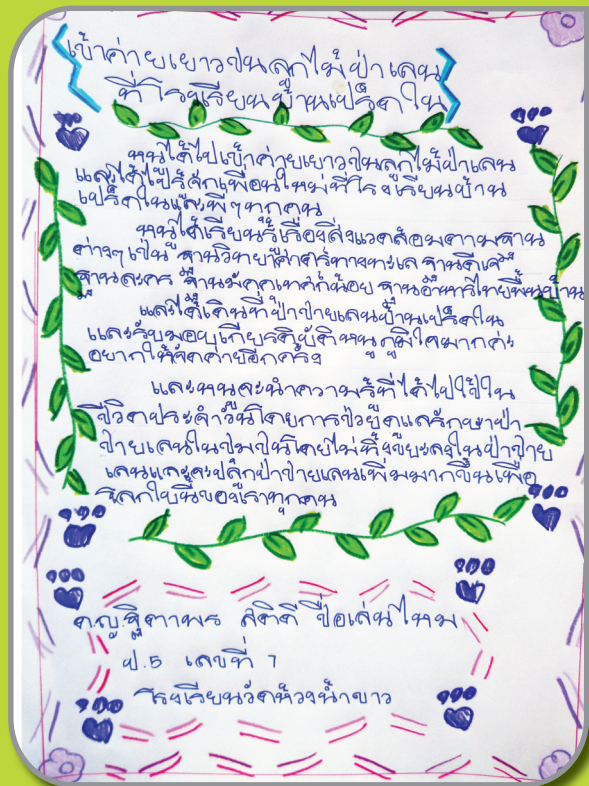 เข้าค่ายเยาวชนลูกไม้ป่าเลน
ที่โรงเรียนบ้านเปร็ดใน
หนูได้ไปเข้าค่ายเยาวชนลูกไม้ป่าเลน
และได้ไปรู้จักเพื่อนใหม่ที่โรงเรียนบ้าน
เปร็ดในและพี่ๆทุกคน
หนูได้เรียนรู้เรื่องสิ่งแวดล้อมตามฐาน
ต่างๆเช่น ฐานวิทยาศาสตร์ทางทะเล ฐานดีเจ
ฐานละคร ฐานมัคคุเทศก์น้อย ฐานอาหารไทยพื้นบ้าน
และได้เดินที่ป่าชายเลนบ้านเปร็ดใน
และรับมอบเกียรติบัติหนูภูมิใจมากค่ะ
อยากให้จัดค่ายอีกครั้ง
และหนูจะนำความรู้ที่ได้ไปใช้ใน
ชีวิตประจำวันโดยการช่วยดูแลรักษาป่า
ชายเลนในชุมชนโดยไม่ทิ้งขยะลงในป่าชาย
เลนและจะปลูกป่าชายเลนเพิ่มมากขึ้นเพื่อ
โลกใบนี้ของเราทุกคน
ด.ญ.ฐิตาพร สดิดี ชื่อเล่นไหม
ป.5 เลขที่ 7
โรงเรียนวัดห้วงน้ำขาว